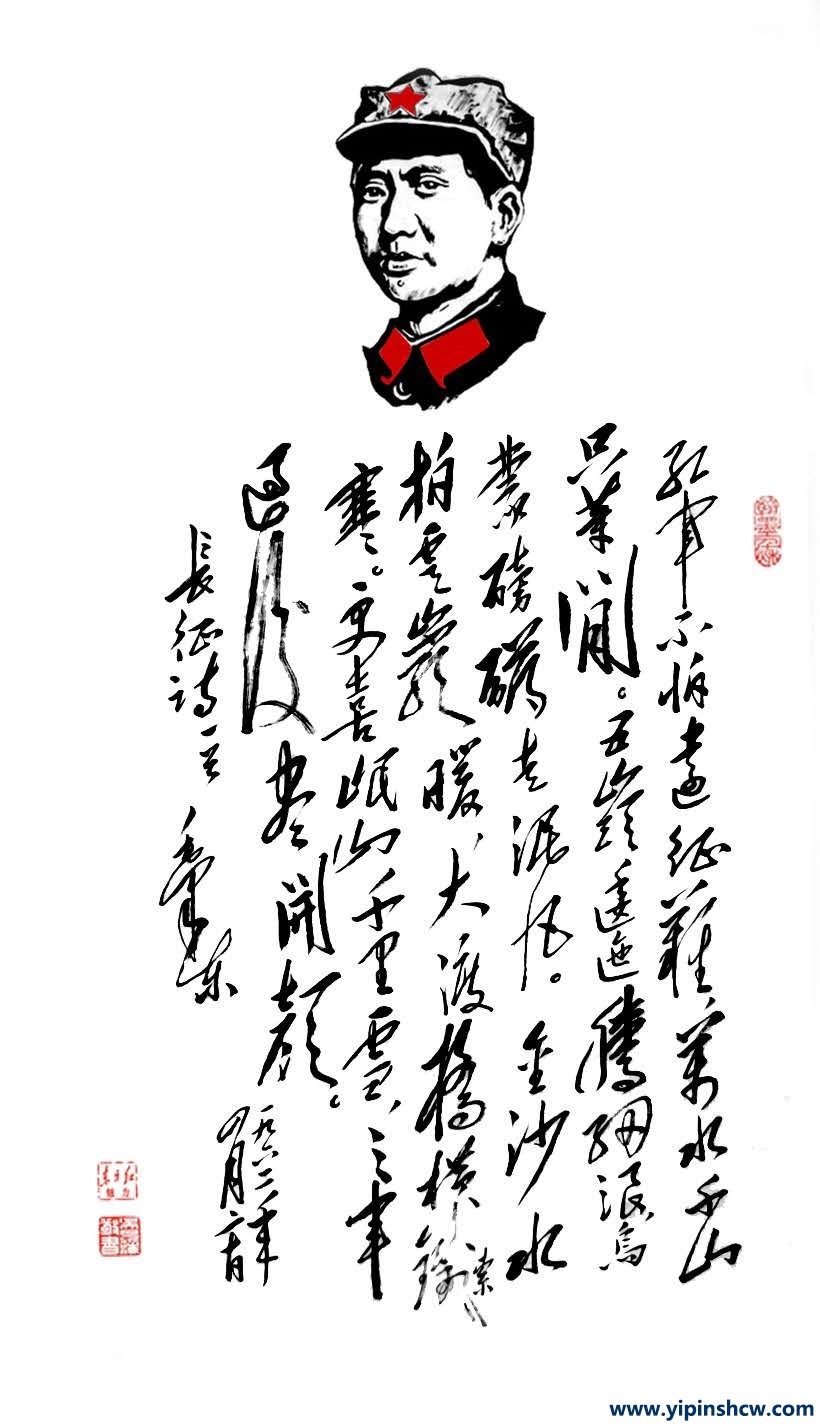 红军不怕远征难万水千山
只等閒。五嶺逶迤腾细浪烏
蒙磅礴走泥丸。金沙水
拍雲巖暖大渡橋横鐵索
寒。更喜岷山千里雪三軍
過後盡開顔。
長征詩一首
毛澤东
一九六二年
四月二十日
www.yipinshcw.com